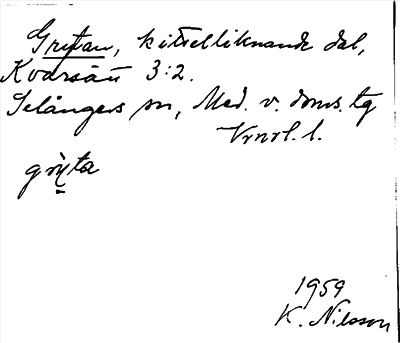 Grytan, kittelliknande dal,
Kvarsätt 3:2.
Selångers sn, Med. v. doms. tg
Vrnrl. l.
grỳ̠ta
1959
K. Nilsson